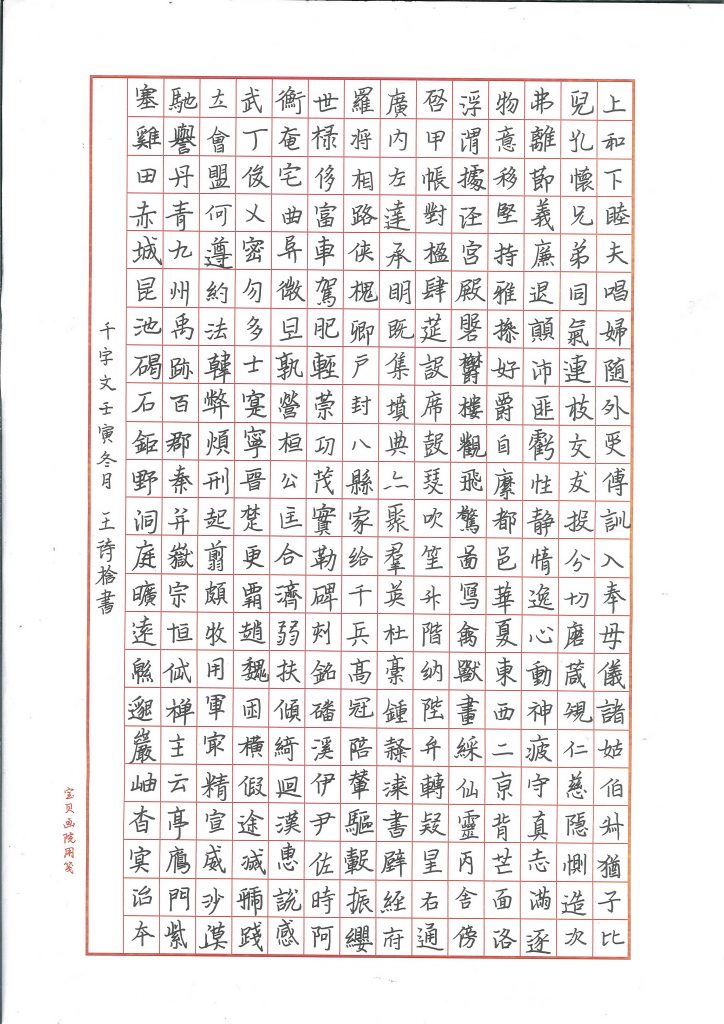 上和下睦夫唱婦随外受傅訓入奉母儀諸姑伯叔猶子比
兒孔懷兄弟同氣連枝交友投分切磨箴規仁慈隱惻造次
弗離節義廉退顛沛匪虧性静情逸心動神疲守真志滿逐
物意移堅持雅操好爵自縻都邑華夏東西二京背芒面洛
浮渭據涇宮殿磐鬱樓觀飛驚圖寫禽獸畫綵仙靈丙舍傍
啓甲帳對楹肆筵設席鼓瑟吹笙升階納陛弁轉疑星右通
廣内左達承明既集墳典亦聚羣英杜稾鍾隸漆書壁經府
羅将相路俠槐卿户封八縣家給千兵高冠陪輦驅轂振纓
世禄侈富車駕肥輕策功茂實勒碑刻銘磻溪伊尹佐時阿
衡奄宅曲阜微旦孰營桓公匡合濟弱扶傾綺迴漢惠說感
武丁俊乂密勿多士寔寧晉楚更霸趙魏困橫假途滅虢踐
土會盟何遵約法韓弊煩刑起翦頗牧用軍最精宣威沙漠
馳譽丹青九州禹跡百郡秦并嶽宗恒岱禪主云亭鴈門紫
塞雞田赤城昆池碣石鉅野洞庭曠遠緜邈巖岫杳冥治本
千字文壬寅冬月 王詩書
宝贝画院用笺